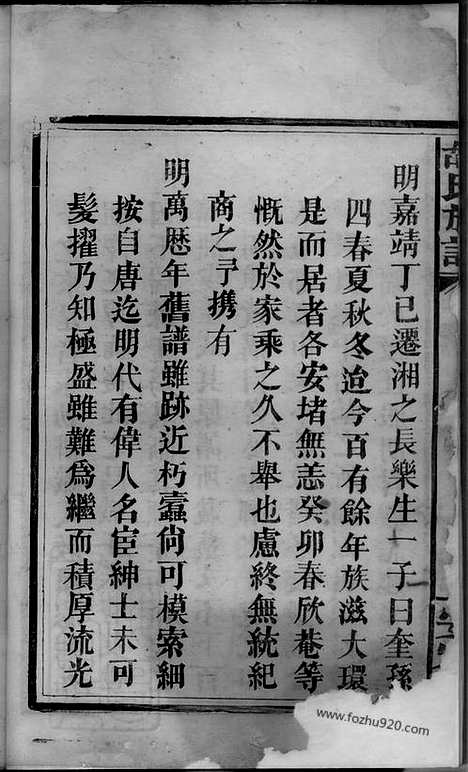 明嘉靖丁巳遷湘之長樂生一子曰奎孫
四春夏秋冬迨今百有餘年族滋大環
是而居者各安堵無恙癸卯春欣菴等
慨然於家乘之久不舉也慮終無統紀
商之予携有
明萬歷年舊譜雖跡近朽蠹尙可模索細
按自唐迄明代有偉人名臣紳士未可
髮擢乃知極盛雖難爲繼而積厚流光
胡氏族譜
www.fozhu920.com